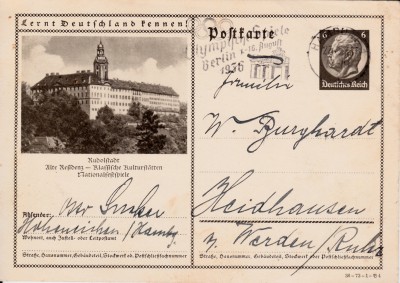 Lernt Deutschland kennen!
Postkarte
Olympische Spiele
Berlin 1.-16. August
1936
6 6
Deutsches Reich
Familie
W. Burghardt
Heidhausen
b. Werden/Ruhr
Rudolstadt
Alte Residenz – Klassische Kulturstätten
Nationalfestspiele
Absender:
Wohnort, auch Zustell- oder Leitpostamt
Straße, Hausnummer, Gebäudeteil, Stockwerk od. Postschließfachnummer
Straße, Hausnummer, Gebäudeteil, Stockwerk od. Postschließfachnummer